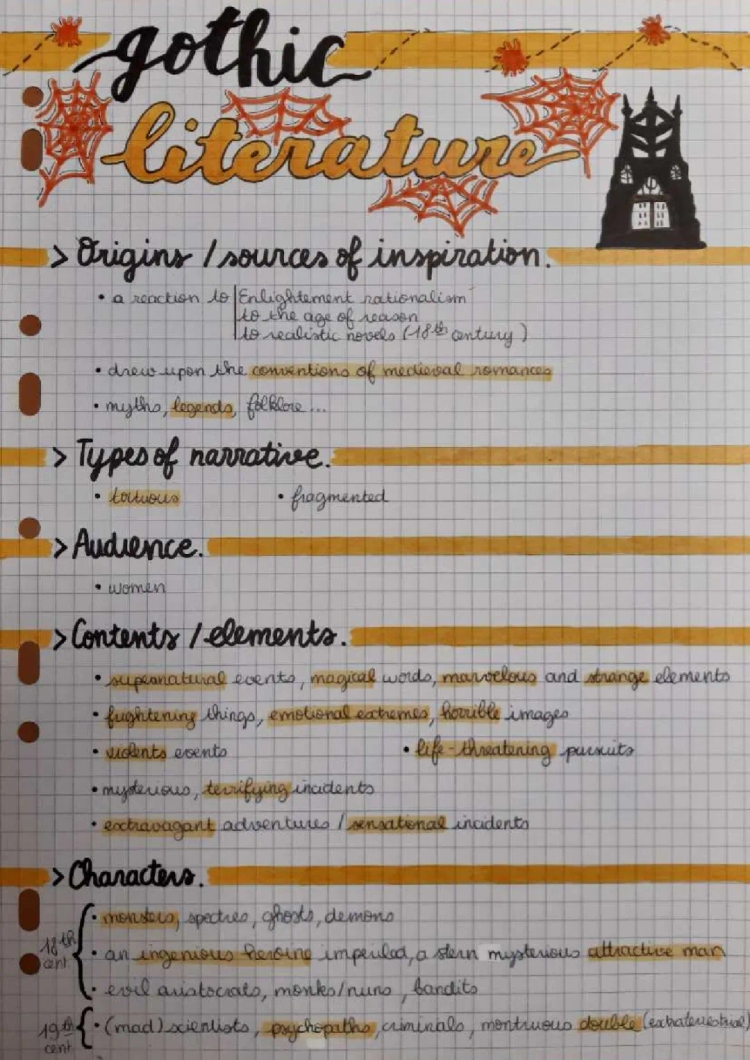 gothic
literature
> Origins / sources of inspiration.
• a reaction to | Enlightement rationalism
to the age of reason
to realistic novels (18th century)
• drew upon the conventions of medieval romances
• myths, legends, folklore...
> Types of narrative.
• tortuous • fragmented
> Audience.
• women
> Contents / elements.
• supernatural events, magical words, marvelous and strange elements
• frightening things, emotional extremes, horrible images
• violents events • life-threatening pursuits
• mysterious, terrifying incidents
• extravagant adventures / sensational incidents
> Characters.
18th cent. { • monsters, spectres, ghosts, demons
• an ingenious heroine imperiled, a stern mysterious attractive man
• evil aristocrats, monks/nuns, bandits
19th cent. { • (mad) scientists, psychopaths, criminals, montruous double (extraterrestrial)